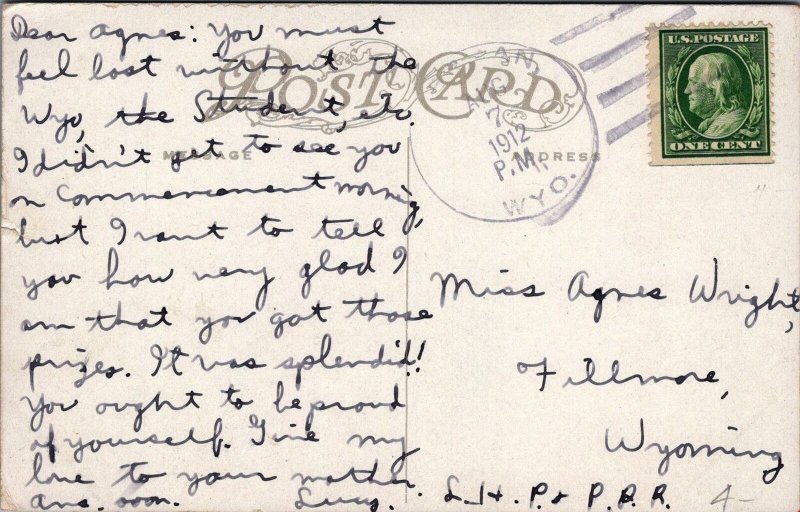 Dear Agnes: You must
feel lost without the
Wyo, the Student, etc.
I didn't get to see you
on Commencement morning,
but I want to tell
you how very glad I
am that you got those
prizes. It was splendid!
You ought to be proud
of yourself. Give my
love to your mother.
Ans. soon. Lucy.
POST CARD
MESSAGE
ADDRESS
AN
7
1912
P.M.
WYO.
U.S. POSTAGE
ONE CENT
Miss Agnes Wright,
Fillmore,
Wyoming
L. H. P. & P. B. R.
4-